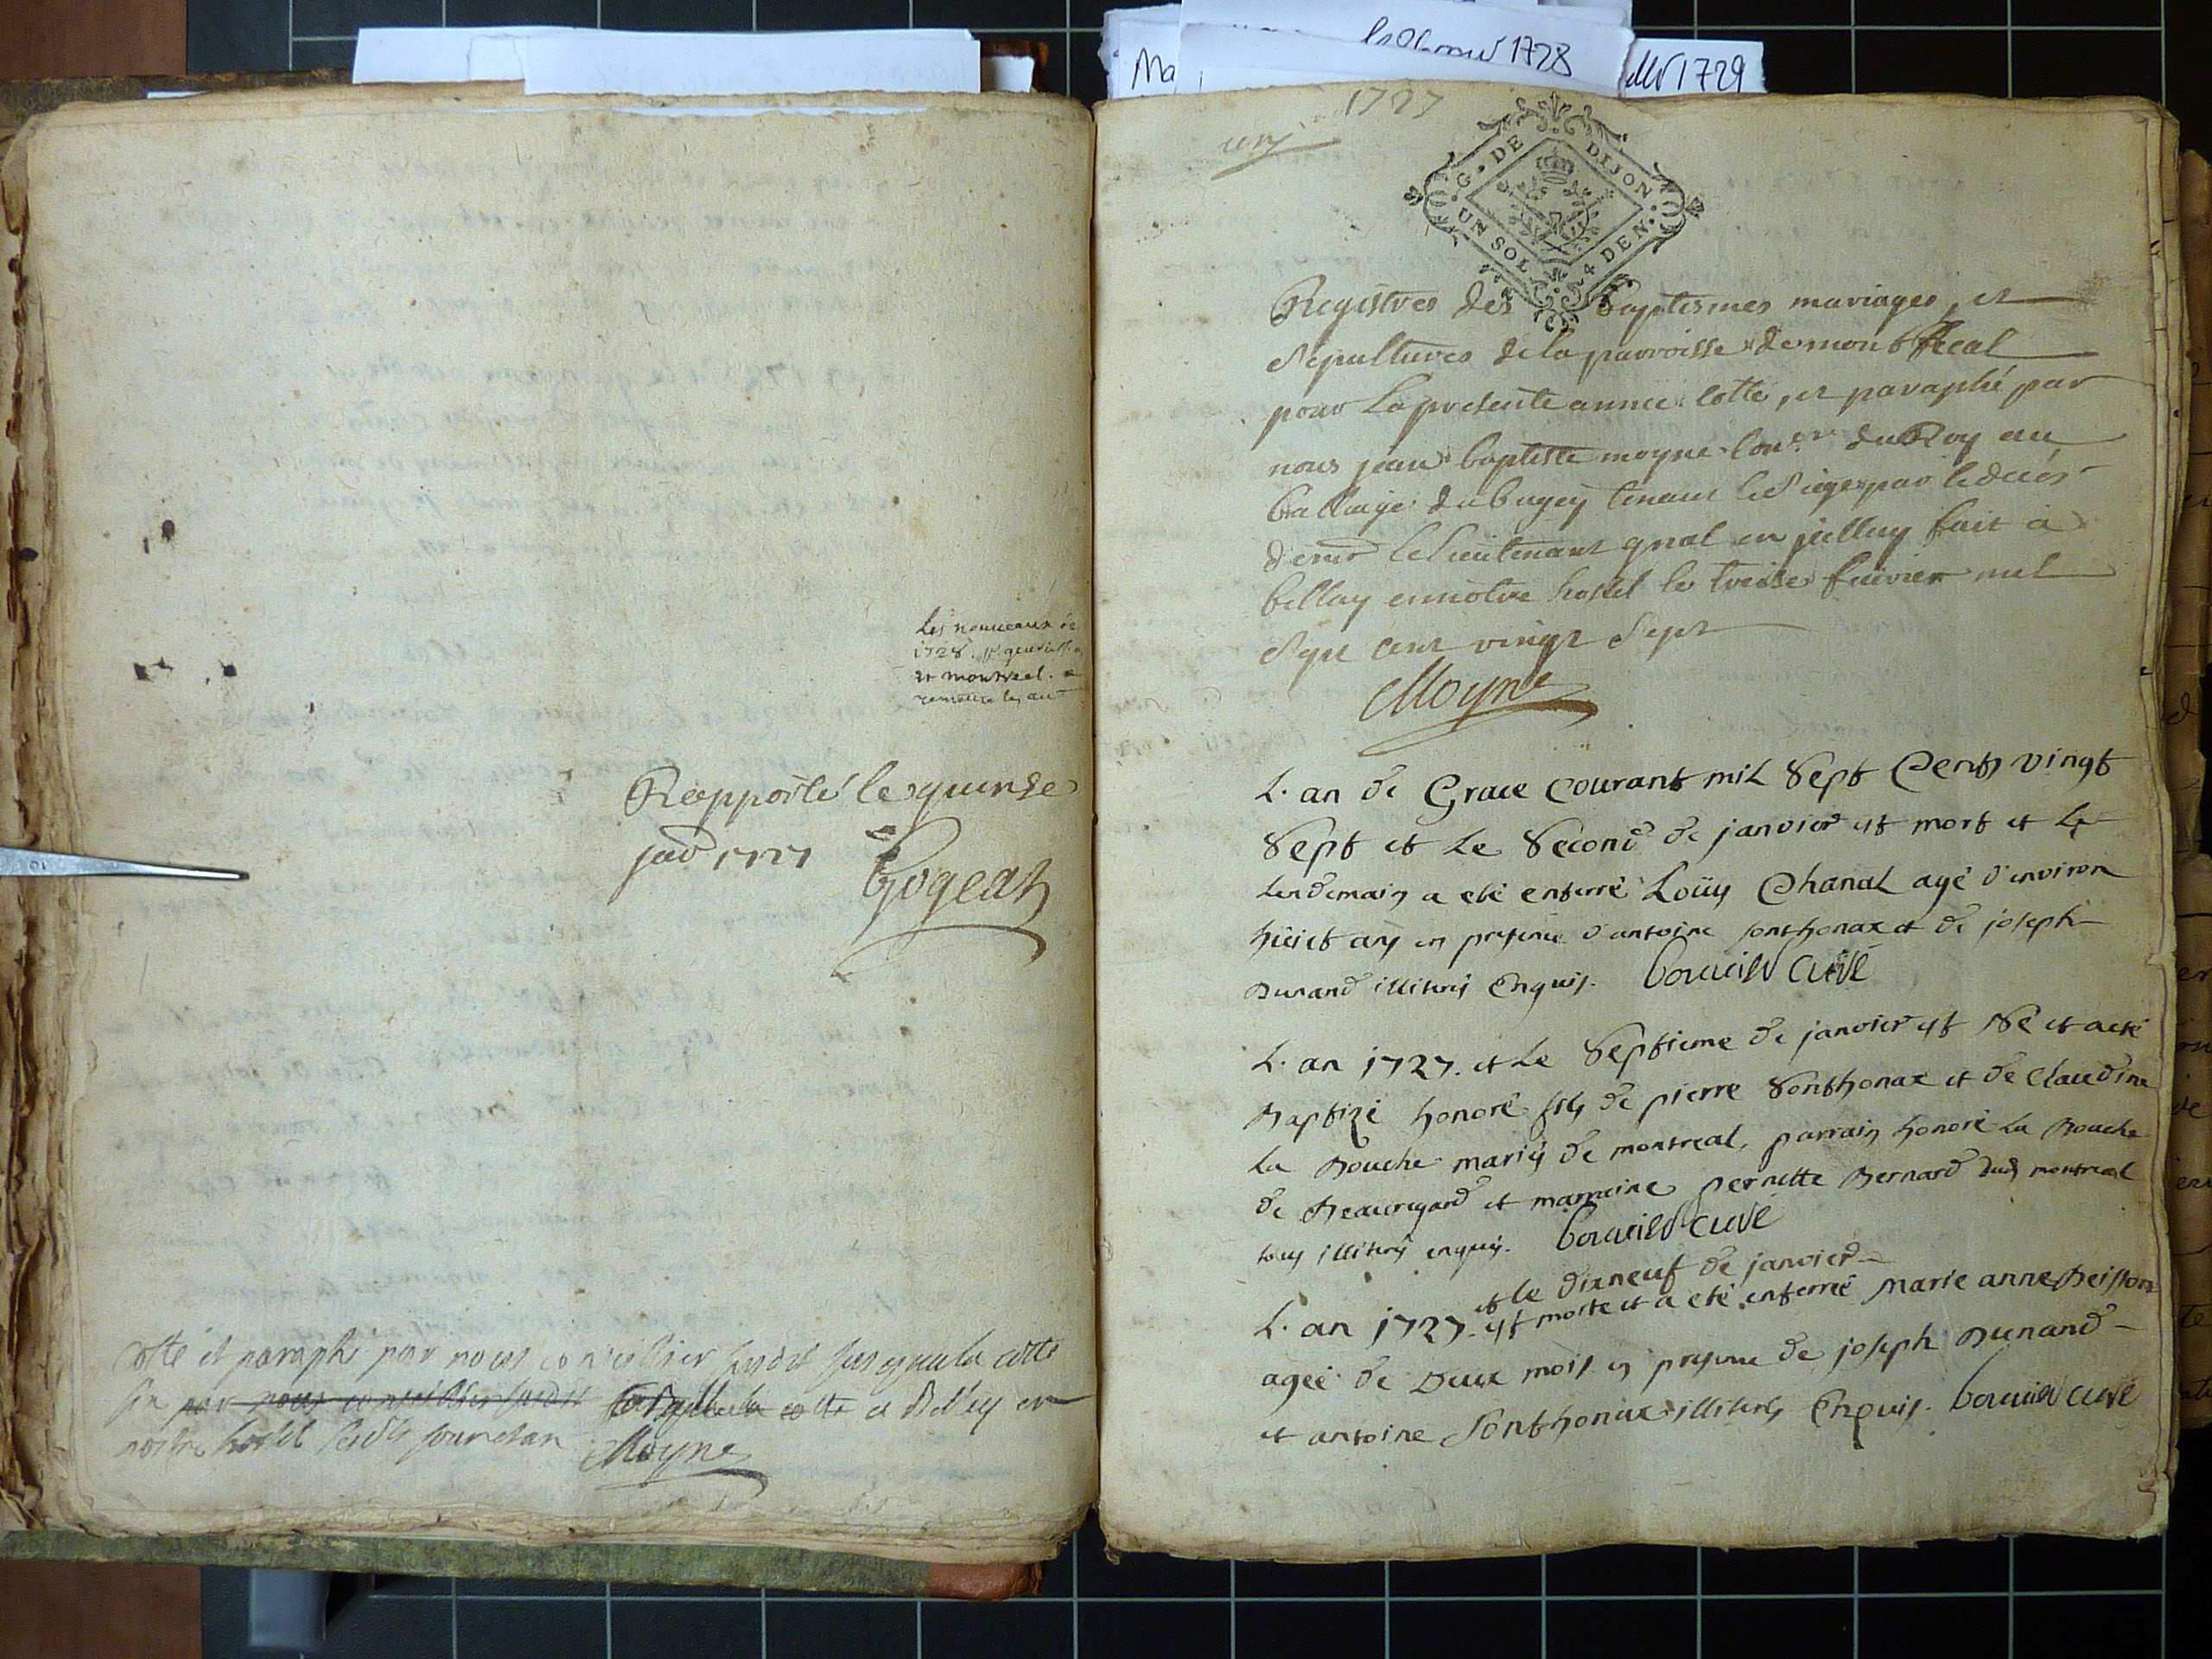 1728
1729
Les nouueaux de
1728.
et montreal.
Rapporté le quinze
jav 1727
Cotté et paraphé par nous conseillier susdit jusques a la cotte
par nous conseillier susdit a Belley en
nostre hostel lesdits jour et an
Moyne
1727
un
G. DE DIJON
UN SOL 4 DEN.
Registres des baptismes mariages, et
sepultures de la parroisse de montreal
pour la presente année cotté, et paraphé par
nous jean baptiste moyne Con.er du Roy au
balliage du bugey tenant le siege par le decés
de mr le lieutenant gnal en fait à
belley en notre hostel le treize fevrier mil
sept cent vingt sept
Moyne
L'an de Grace courant mil sept cents vingt
sept et le second de janvier est mort et le
lendemain a eté enterré Loüys Chanal agé d'environ
hüict ans en presence d'antoine sonthonax et de joseph
Dunand illiterés Enquis. curé
L'an 1727. et le septieme de janvier est né et a eté
Baptizé honoré fils de pierre sonthonax et de claudine
La Bouche mariés de montreal, parrain honoré La Bouche
de Beauregard et marreine pernette Bernard dud montreal
tous illiterés enquis. curé
et le dixneuf de janvier
L'an 1727. est morte et a eté enterrée Marie anne
agée de Deux mois en presence de joseph Dunand
et antoine Sonthonax illiterés Enquis. curé